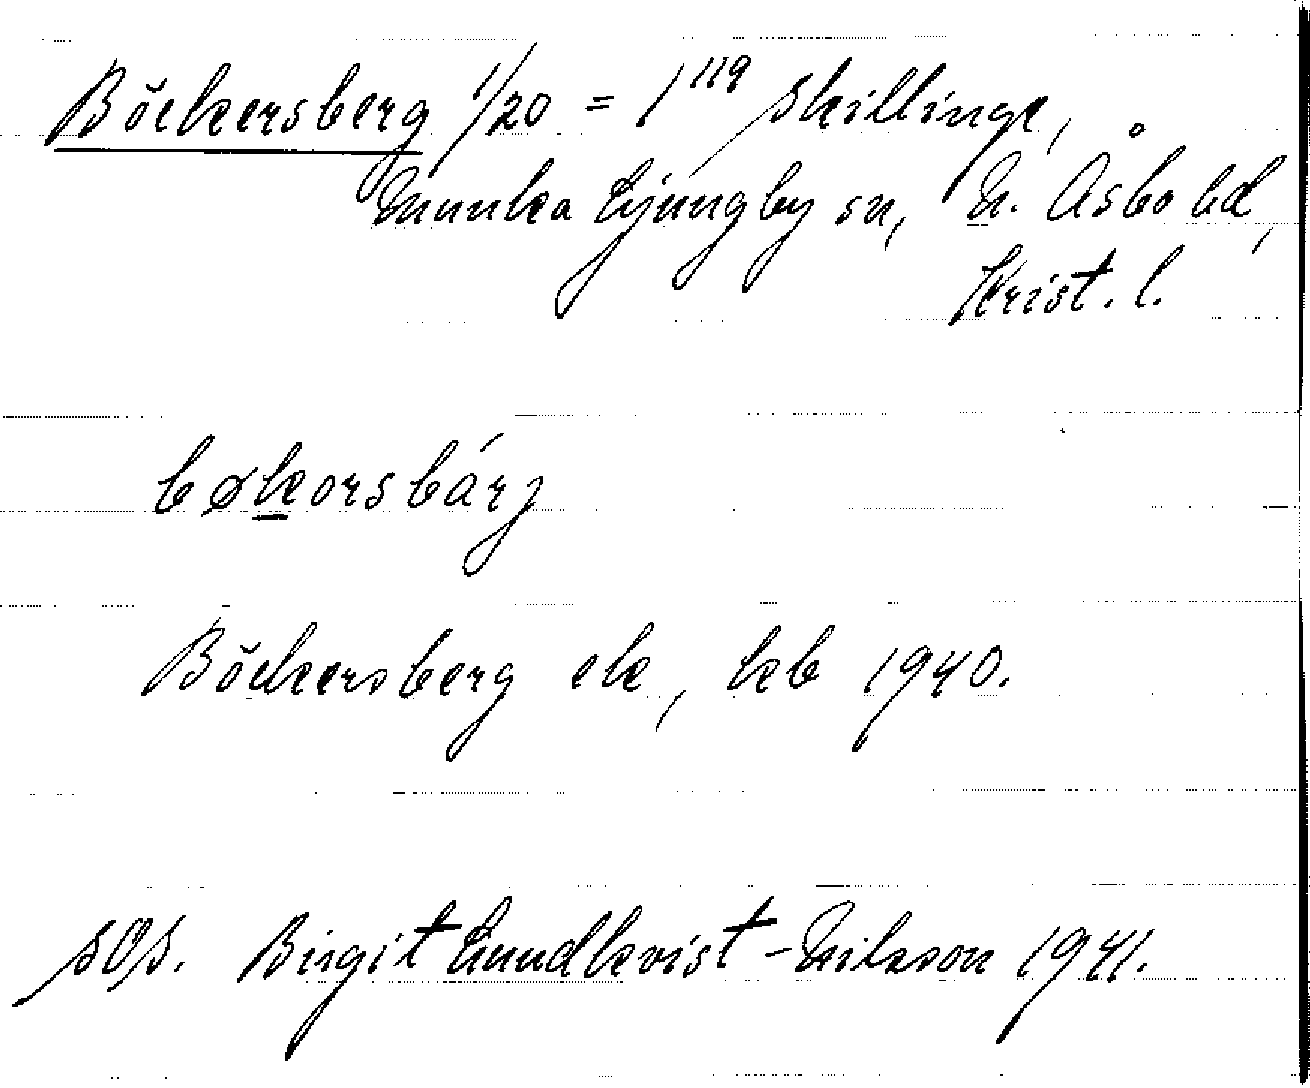 Böckersberg 1/20 = 1¹¹⁹ Skillinge,
Munka Ljungby sn, N. Åsbo hd,
Krist. l.
bøkorsbárj
Böckersberg ek, kb 1940.
SOS. Birgit Lundkvist-Nilsson 1941.